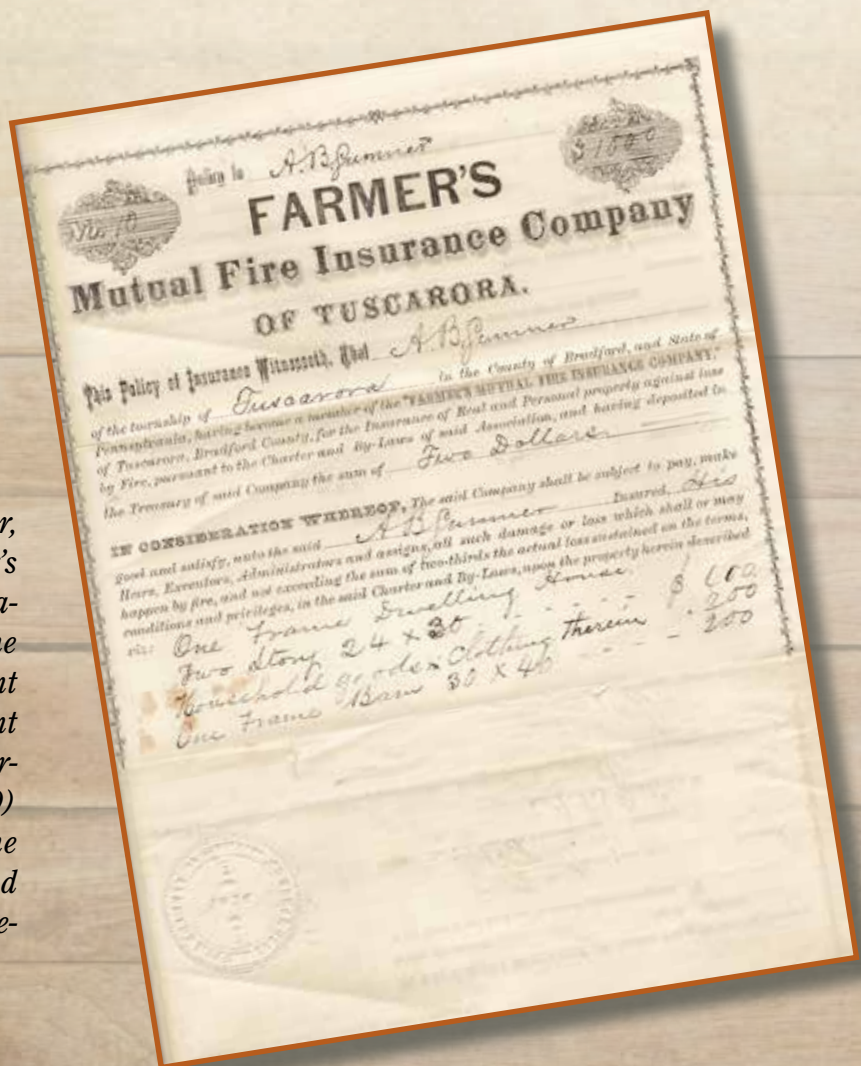 Policy to A. B. Sumner
No. 10
$1000
FARMER'S
Mutual Fire Insurance Company
OF TUSCARORA.
This Policy of Insurance Witnesseth, That A. B. Sumner
of the township of Tuscarora in the County of Bradford, and State of
Pennsylvania, having become a member of the "FARMER'S MUTUAL FIRE INSURANCE COMPANY,"
of Tuscarora, Bradford County, for the Insurance of Real and Personal property against loss
by Fire, pursuant to the Charter and By-Laws of said Association, and having deposited in
the Treasury of said Company the sum of Two Dollars
IN CONSIDERATION WHEREOF, The said Company shall be subject to pay, make
good and satisfy, unto the said A B Sumner Insured, His
Heirs, Executors, Administrators and assigns, all such damage or loss which shall or may
happen by fire, and not exceeding the sum of two-thirds the actual loss sustained on the terms,
conditions and privileges, in the said Charter and By-Laws, upon the property herein described
viz: One Frame Dwelling House.
Two Story 24 x 30 - - - - - - $ 600
Household goods & Clothing therein - 200
One Frame Barn 30 x 40 - - - 200
r,
's
a-
ne
nt
nt
r-
0)
ne
d
e-